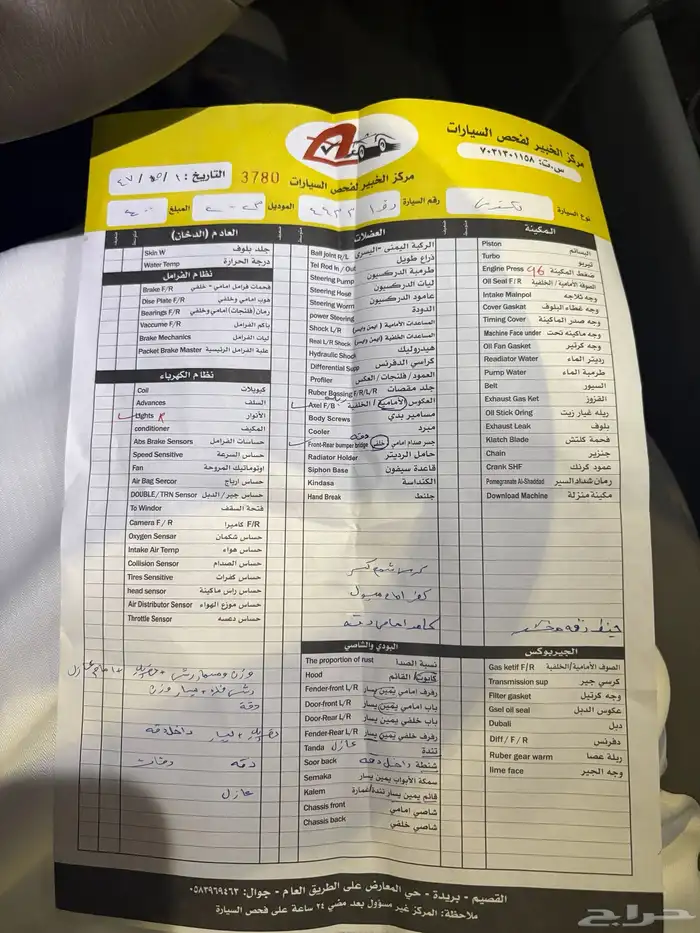 مركز الخبير لفحص السيارات
س.ت: ٧٠٣١٣٠١١٥٨
مركز الخبير لفحص السيارات
3780
التاريخ:
نوع السيارة
رقم السيارة
الموديل
المبلغ
المكينة
Piston البساتم
Turbo تيربو
Engine Press 96 ضغط المكينة
Oil Seal F/R الصوفة الأمامية/الخلفية
Intake Mainpol وجه ثلاجه
Cover Gaskat وجه غطاء البلوف
Timing Cover وجه صدر الماكينة
Machine Face under وجه ماكينه تحت
Oil Fan Gasket وجه كرتير
Readiator Water رديتر الماء
Pump Water طرمبة الماء
Belt السيور
Exhaust Gas Ket القزوز
Oil Stick Oring ريله غيار زيت
Exhaust Leak بلوف
Klatch Blade فحمة كلتش
Chain جنزير
Crank SHF عمود كرنك
Pomegranate Al-Shaddad رمان شداد السير
Download Machine مكينة منزلة
الجيربوكس
Gas ketif F/R الصوف الأمامية/الخلفية
Transmission sup كرسي جير
Filter gasket وجه كرتيل
Gsel oil seal عكوس الدبل
Dubali دبل
Diff / F / R دفرنس
Ruber gear warm ريلة عصا
lime face وجه الجير
العضلات
Ball joint R/L الركبة اليمنى - اليسرى
Tei Rod In / Out ذراع طويل
Steering Pump طرمبة الدركسيون
Steering Hose ليات الدركسيون
Steering Worm عامود الدركسيون
power Steering الدودة
Shock L/R المساعدات الأمامية (ايمن وايسر)
Real L/R Shock المساعدات الخلفية (ايمن وايسر)
Hydraulic Shock هيدروليك
Differential Supp كراسي الدفرنس
Profiler العمود/فلنجات/العكس
Ruber Bossing F/R/L/R جلد مقصات
Axel F/B العكوس الأمامية/الخلفية
Body Screws مسامير بدي
Cooler مبرد
Front-Rear bumper bridge جسر صدام امامي خلفي دقه
Radiator Holder حامل الرديتر
Siphon Base قاعدة سيفون
Kindasa الكنداسة
Hand Break جلنط
البودي والشاصي
The proportion of rust نسبة الصدا
Hood كابوت/القائم
Fender-front L/R رفرف امامي يمين يسار
Door-front L/R باب امامي يمين يسار
Door-Rear L/R باب خلفي يمين يسار
Fender-Rear L/R رفرف خلفي يمين يسار
Tanda عازل تندة
Soor back شنطة داخل دقه
Semaka سمكة الأبواب يمين يسار
Kalem قائم يمين يسار تندة/غمارة
Chassis front شاصي امامي
Chassis back شاصي خلفي
العادم (الدخان)
Skin W جلد بلوف
Water Temp درجة الحرارة
نظام الفرامل
Brake F/R فحمات فرامل امامي - خلفي
Dise Plate F/R هوب امامي وخلفي
Bearings F/R رمان (فلنجات) امامي وخلفي
Vaccume F/R باكم الفرامل
Brake Mechanics ليات الفرامل
Packet Brake Master علبة الفرامل الرئيسية
نظام الكهرباء
Coil كبويلات
Advances السلف
Lights R الأنوار
conditioner المكيف
Abs Brake Sensors حساسات الفرامل
Speed Sensitive حساس السرعة
Fan اوتوماتيك المروحة
Air Bag Sercor حساس ارباج
DOUBLE/TRN Sensor حساس جير/الدبل
To Windor فتحة السقف
Camera F / R كاميرا F/R
Oxygen Sensar حساس شكمان
Intake Air Temp حساس هواء
Collision Sensor حساس الصدام
Tires Sensitive حساس كفرات
head sensor حساس راس ماكينة
Air Distributor Sensor حساس موزع الهواء
Throttle Sensor حساس دعسه
دقة
داخل دقه
دقه
عازل
القصيم - بريدة - حي المعارض على الطريق العام - جوال: ٠٥٨٣٩٦٩٤٦٣
ملاحظة: المركز غير مسؤول بعد مضي ٢٤ ساعة على فحص السيارة
حراج